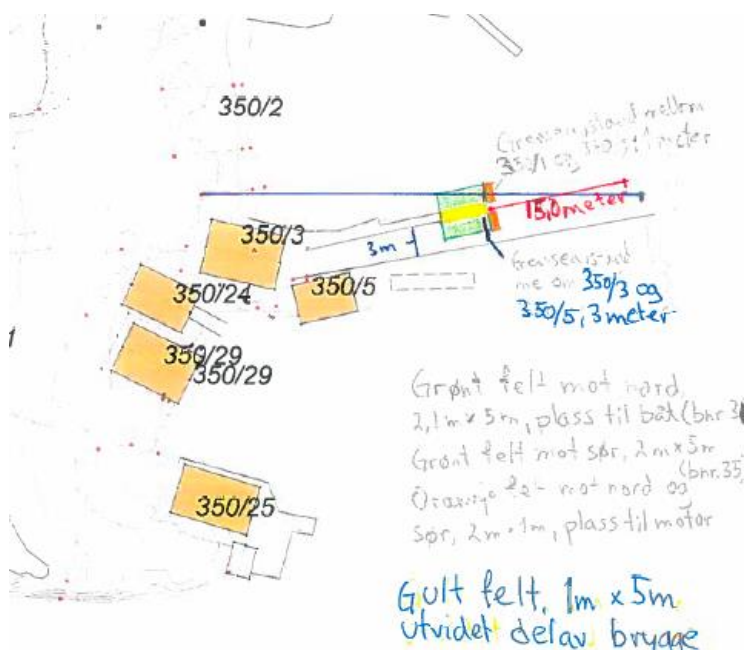 350/2
Grenseavstand mellom
350/1 og 350
meter
15,0 meter
350/3
3m
350/24
350/5
350/3 og
350/5, 3 meter
350/29
350/29
Grønt felt mot nord,
2,1m x 5m, plass til båt (bnr.
Grønt felt mot sør, 2m x 5m
(bnr.35
mot nord og
sør, 2m 1m, plass til motor
350/25
Gult felt, 1m x 5m
utvidet del av brygge